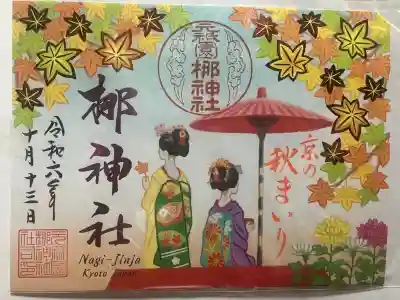 元祇園梛神社
梛神社
令和六年
十月十三日
京の
秋まいり
Nagi-Jinja
Kyoto Japan